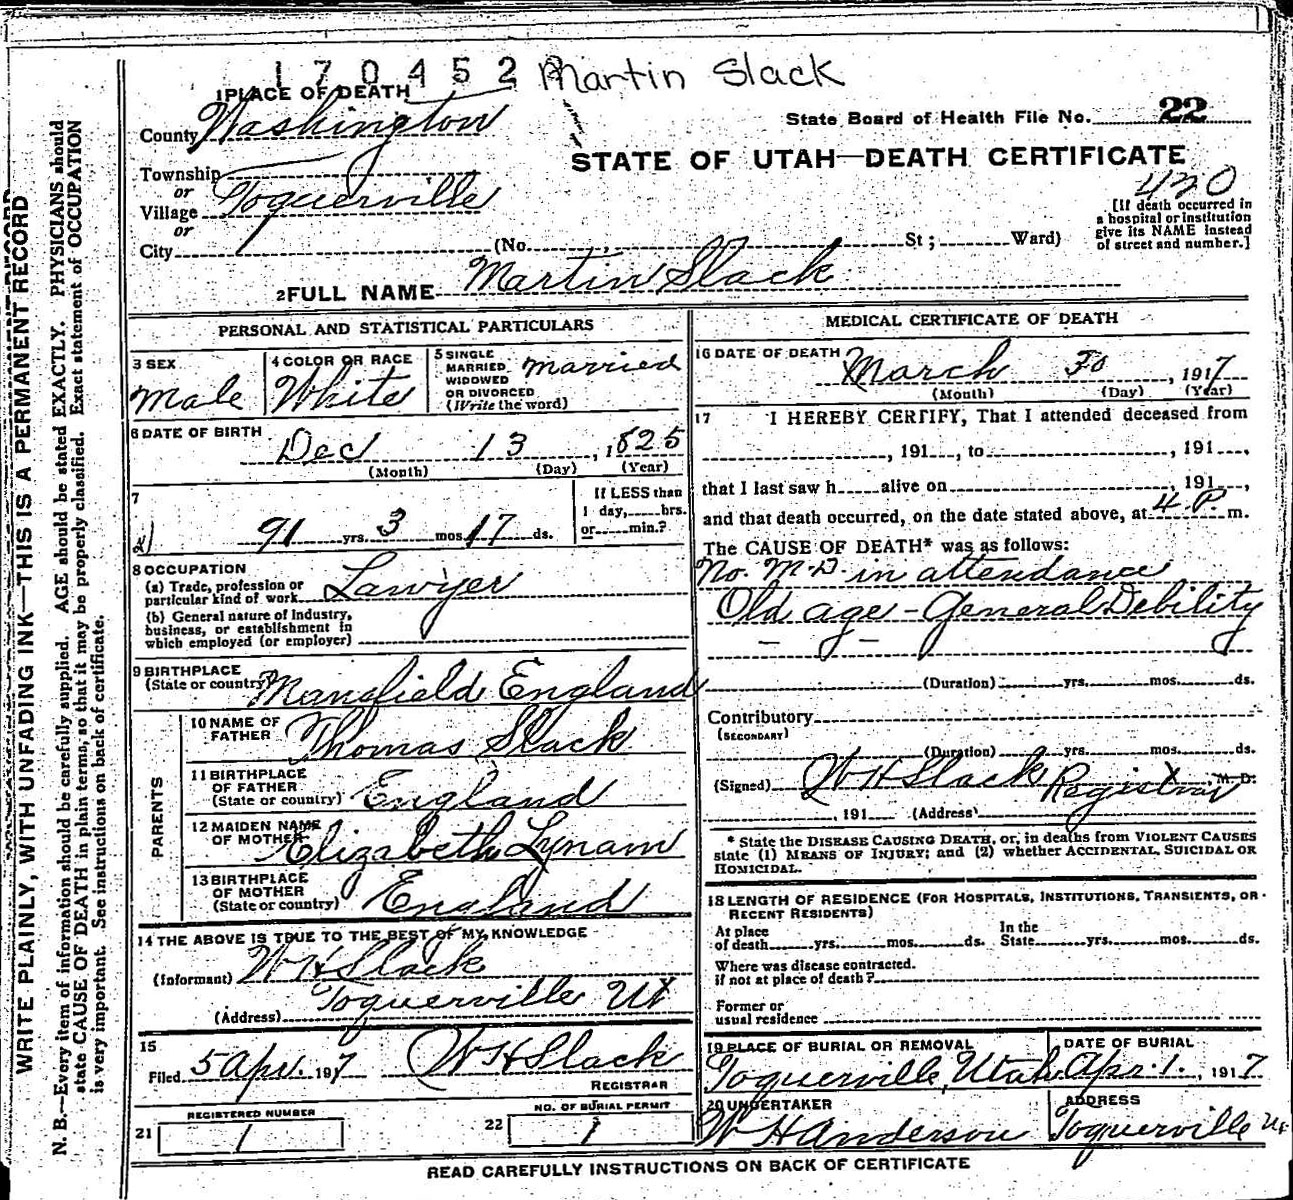 170452 Martin Slack
1 PLACE OF DEATH
County Washington
State Board of Health File No. 22
STATE OF UTAH—DEATH CERTIFICATE
Township
or
Village Toquerville
or
City (No. St; Ward)
430
[If death occurred in
a hospital or institution
give its NAME instead
of street and number.]
2 FULL NAME Martin Slack
PERSONAL AND STATISTICAL PARTICULARS
3 SEX
Male
4 COLOR OR RACE
White
5 SINGLE
MARRIED
WIDOWED
OR DIVORCED
(Write the word)
married
6 DATE OF BIRTH
Dec 13, 1825
(Month) (Day) (Year)
7
91 yrs. 3 mos. 17 ds.
If LESS than
1 day, hrs.
or min.?
8 OCCUPATION
(a) Trade, profession or
particular kind of work Lawyer
(b) General nature of Industry,
business, or establishment in
which employed (or employer)
9 BIRTHPLACE
(State or country) Mansfield England
PARENTS
10 NAME OF
FATHER Thomas Slack
11 BIRTHPLACE
OF FATHER
(State or country) England
12 MAIDEN NAME
OF MOTHER Elizabeth Lynam
13 BIRTHPLACE
OF MOTHER
(State or country) England
14 THE ABOVE IS TRUE TO THE BEST OF MY KNOWLEDGE
(Informant) W H Slack
(Address) Toquerville Ut
15
Filed 5 Apr. 1917 W H Slack
REGISTRAR
21 REGISTERED NUMBER
1
22 NO. OF BURIAL PERMIT
1
MEDICAL CERTIFICATE OF DEATH
16 DATE OF DEATH
March 30, 1917
(Month) (Day) (Year)
17 I HEREBY CERTIFY, That I attended deceased from
, 191 , to , 191 ,
that I last saw h alive on , 191 ,
and that death occurred, on the date stated above, at 4 P. m.
The CAUSE OF DEATH* was as follows:
No. M.D. in attendance
Old age - General Debility
(Duration) yrs. mos. ds.
Contributory
(SECONDARY)
(Duration) yrs. mos. ds.
(Signed) W H Slack Registrar M.D.
, 191 (Address)
* State the DISEASE CAUSING DEATH, or, in deaths from VIOLENT CAUSES
state (1) MEANS OF INJURY; and (2) whether ACCIDENTAL, SUICIDAL OR
HOMICIDAL.
18 LENGTH OF RESIDENCE (FOR HOSPITALS, INSTITUTIONS, TRANSIENTS, OR
RECENT RESIDENTS)
At place
of death yrs. mos. ds.
In the
State yrs. mos. ds.
Where was disease contracted.
if not at place of death?
Former or
usual residence
19 PLACE OF BURIAL OR REMOVAL
Toquerville, Utah
DATE OF BURIAL
Apr. 1., 1917
20 UNDERTAKER
W H Anderson
ADDRESS
Toquerville Ut
READ CAREFULLY INSTRUCTIONS ON BACK OF CERTIFICATE
WRITE PLAINLY, WITH UNFADING INK—THIS IS A PERMANENT RECORD
N. B.—Every item of information should be carefully supplied. AGE should be stated EXACTLY. PHYSICIANS should
state CAUSE OF DEATH in plain terms, so that it may be properly classified. Exact statement of OCCUPATION
is very important. See instructions on back of certificate.